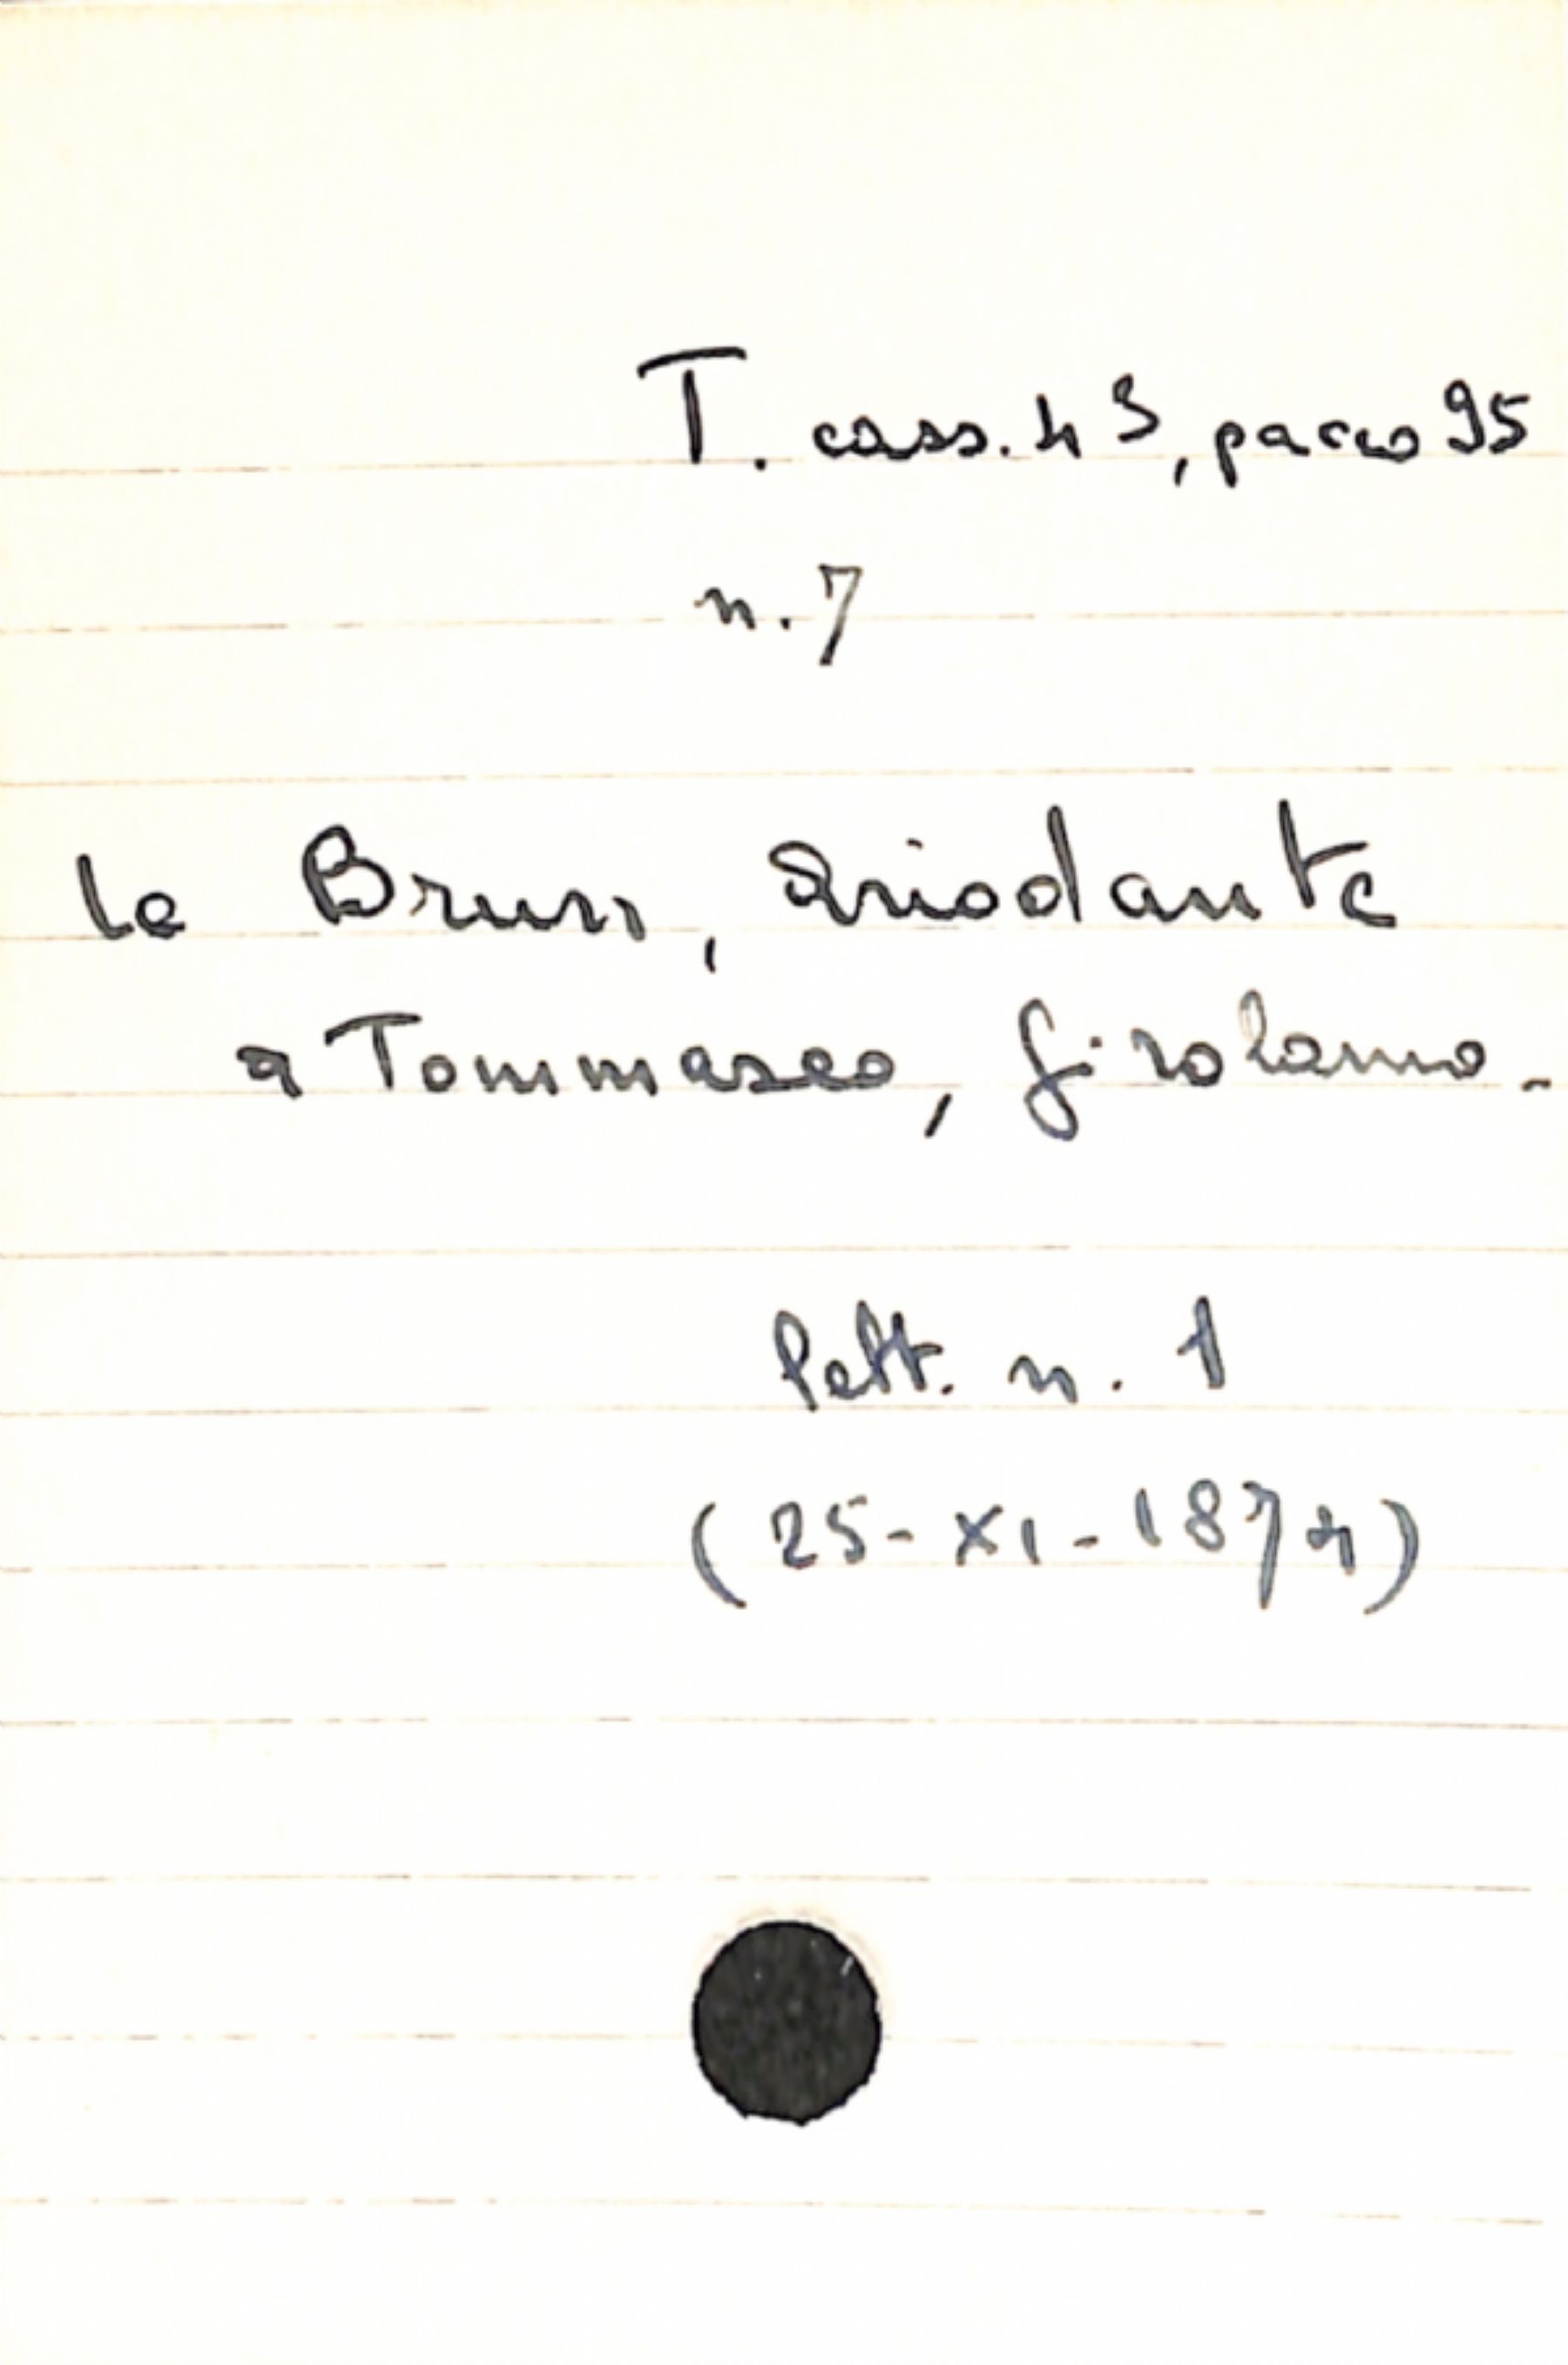 T. cass. 43, pacco 95
n. 7
Le Brun, Ariodante
a Tommaseo, Girolamo.
lett. n. 1
(25-XI-1874)